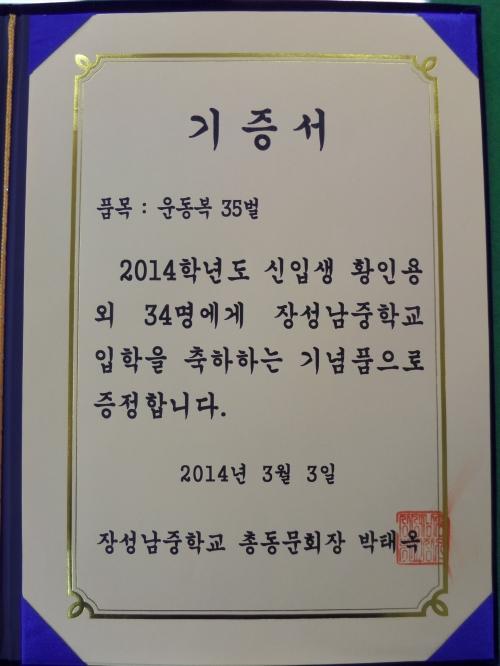 기 증 서
품목 : 운동복 35벌
2014학년도 신입생 황인용
외 34명에게 장성남중학교
입학을 축하하는 기념품으로
증정합니다.
2014년 3월 3일
장성남중학교 총동문회장 박태옥